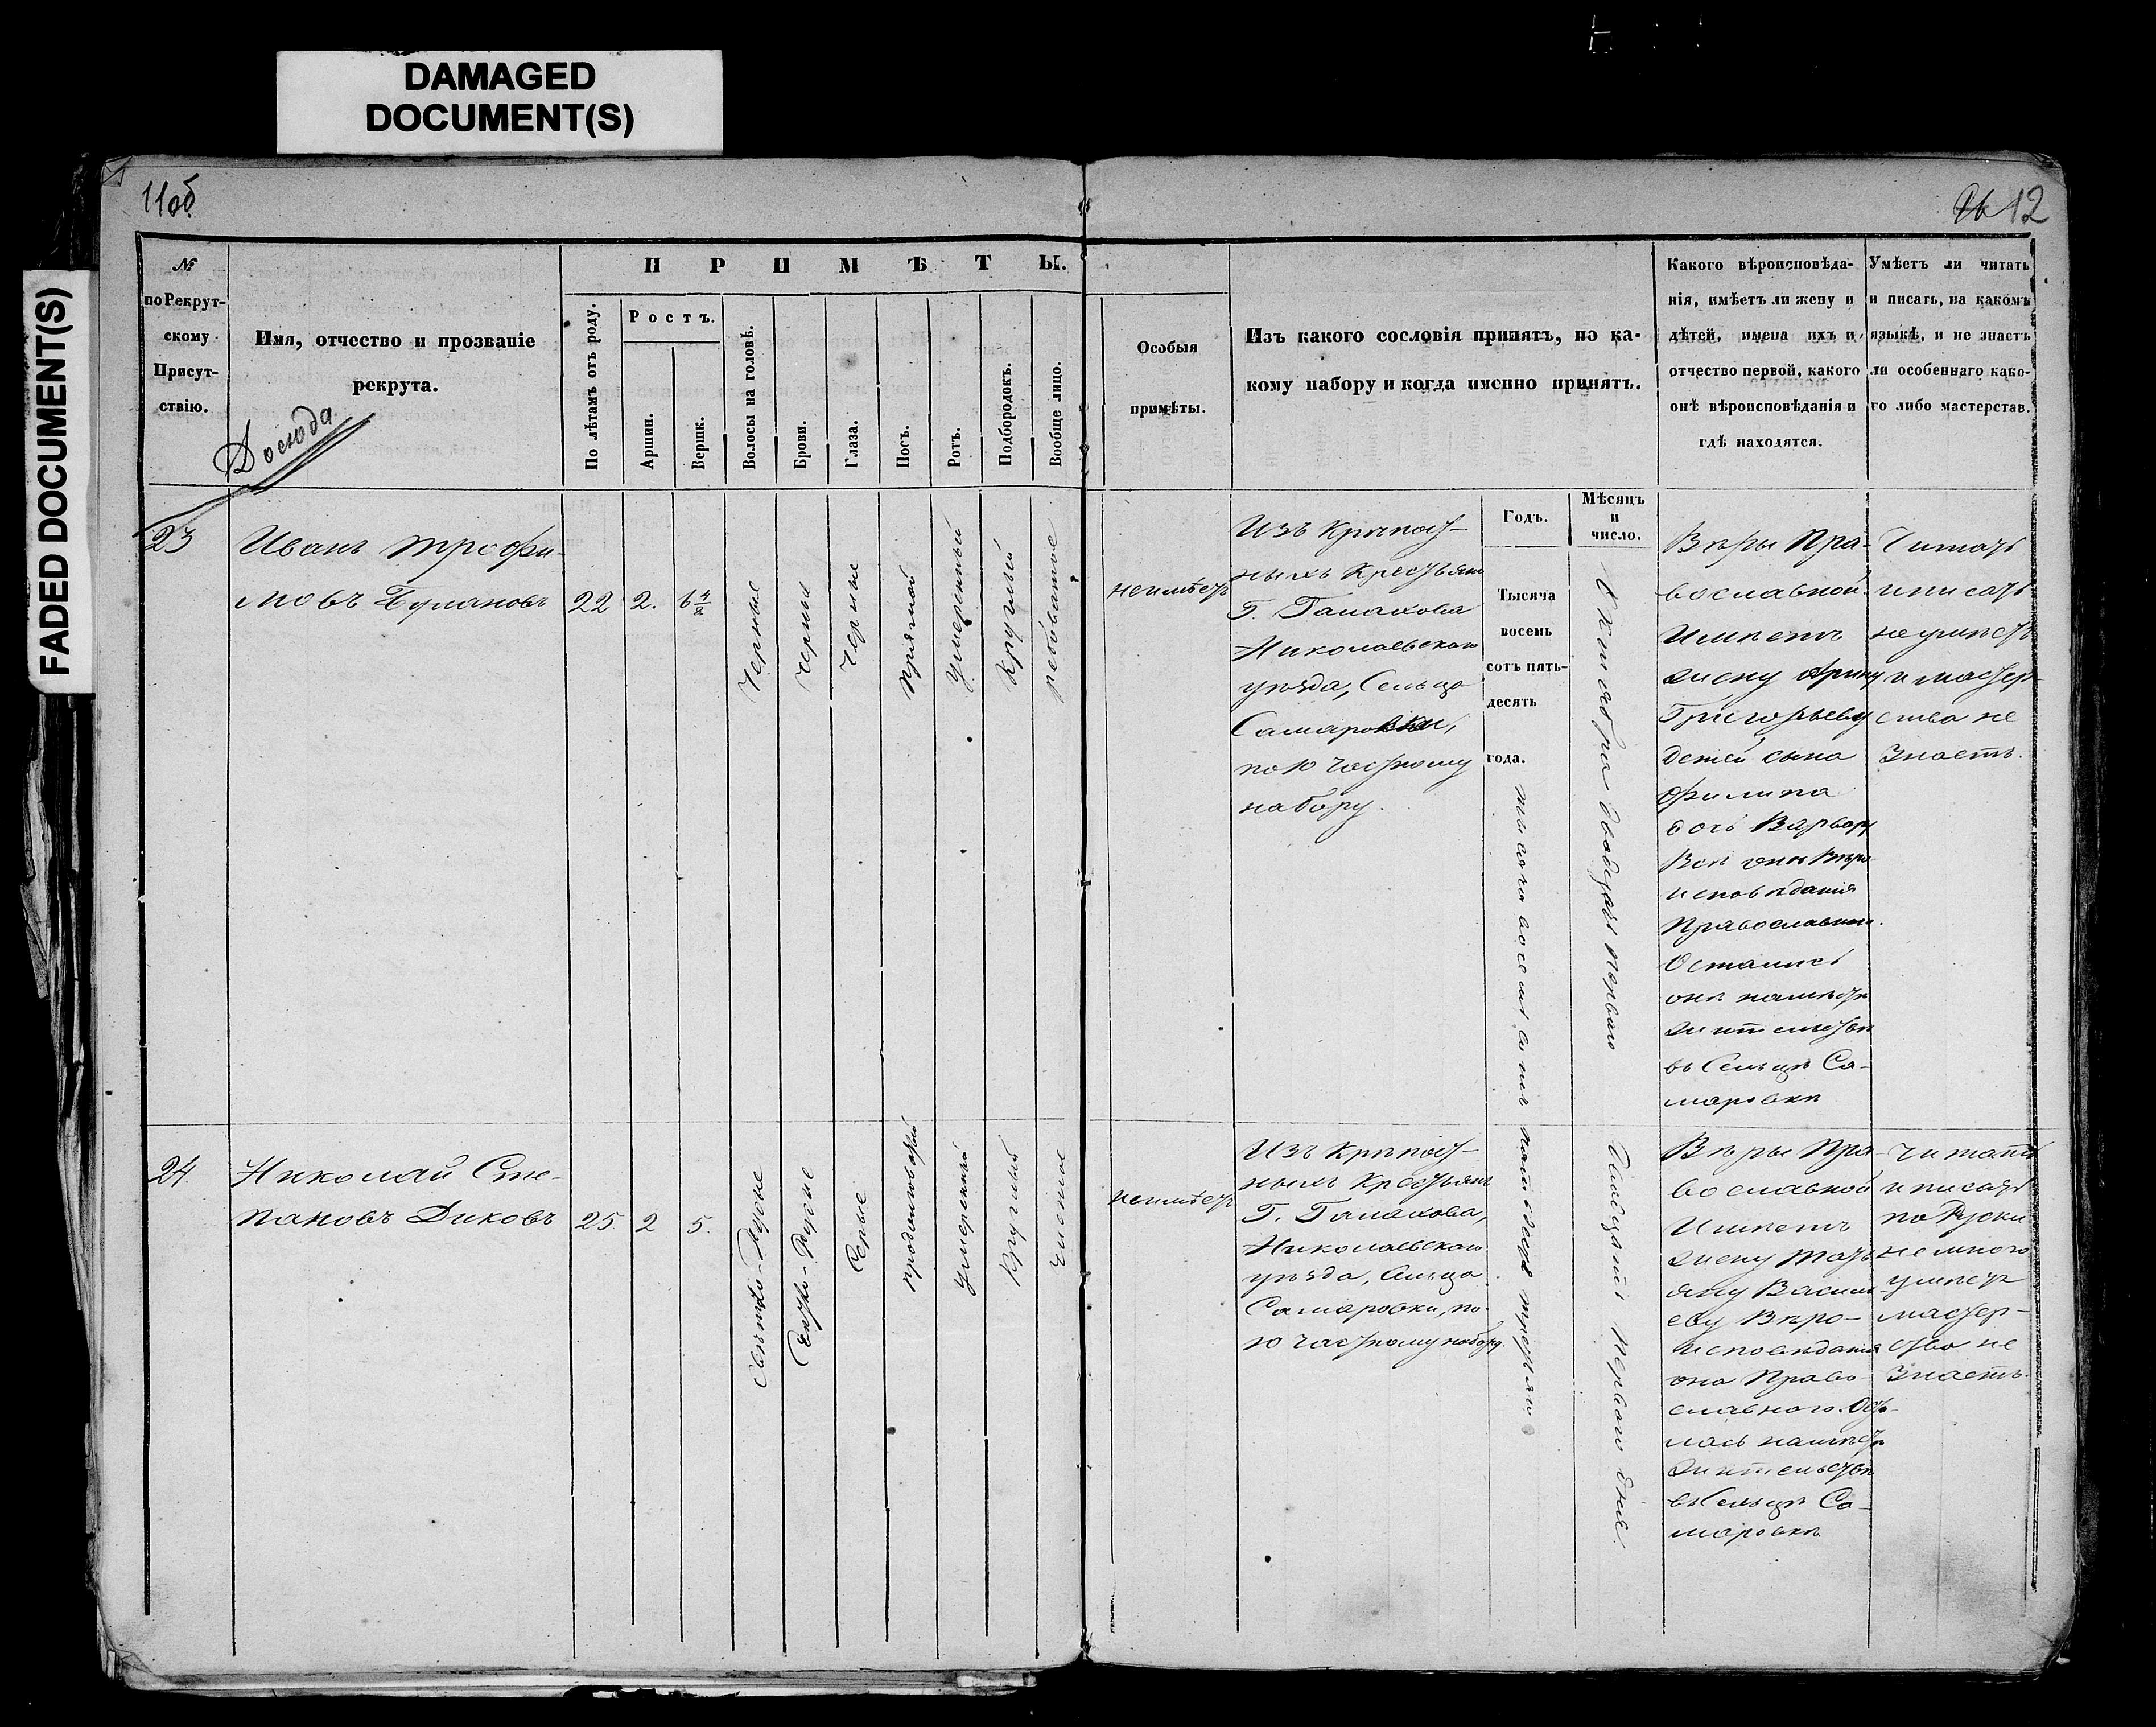 DAMAGED
DOCUMENT(S)
FADED DOCUMENT(S)
11об.
12
№
по Рекрут-
скому
Присут-
ствію.
Имя, отчество и прозваніе
рекрута.
Досюда
ПРИМѢТЫ.
По лѣтамъ отъ роду.
Ростъ.
Аршин.
Вершк.
Волосы на головѣ.
Брови.
Глаза.
Носъ.
Ротъ.
Подбородокъ.
Вообще лицо.
Особыя
примѣты.
Изъ какого сословія принятъ, по ка-
кому набору и когда именно принятъ.
Какого вѣроисповѣда-
нія, имѣетъ ли жену и
дѣтей, имена ихъ и
отчество первой, какого
онѣ вѣроисповѣданія и
гдѣ находятся.
Умѣетъ ли читать
и писать, на какомъ
языкѣ, и не знаетъ
ли особеннаго како-
го либо мастерства.
23
Иванъ Трофи-
мовъ Булановъ
22
2.
6 4/2
Черные
Черные
Черные
Прямой
Умеренный
Круглый
рябоватое
неимѣетъ
Изъ Крѣпост-
ныхъ Крестьянъ
Г. Галахова
Николаевскаго
уѣзда, Сельцо
Самаровки,
по 10 частному
набору.
Годъ.
Тысяча
восемь
сотъ пять-
десять
года.
тысяча восемь сотъ пятьдесятъ третьяго
Мѣсяцъ
и
число.
Октября двадцать перваго
Вѣры Пра-
вославной.
Имѣетъ
жену Арину
Григорьеву
детей сына
Филипа
дочь Варвару
Всѣ онѣ Вѣро
исповѣданія
Православнаго.
Остались
онѣ на мѣстѣ
жительствѣ
въ Сельцѣ Са-
маровкѣ
Читать
и писать
не умѣетъ
и мастер-
ства не
Знаетъ.
24.
Николай Сте-
пановъ Диковъ
25
2
5.
Светло-Русые
Светло-Русые
Серые
продолговатый
Умеренный
Круглый
Чистое
неимѣетъ
Изъ Крѣпост-
ныхъ Крестьянъ
Г. Галахова,
Николаевскаго
уѣзда, Сельца
Самаровки, по
10 частному набору.
двадцать перваго дня.
Вѣры Пра-
вославной
Имѣетъ
жену Тать-
яну Василь-
еву Вѣро-
исповѣданія
она Право-
славного. Оста-
лась на мѣстѣ
жительствѣ
въ Сельцѣ Са-
маровкѣ
Читать
и писать
по Руски
не много
умѣетъ
мастер-
ства не
Знаетъ.